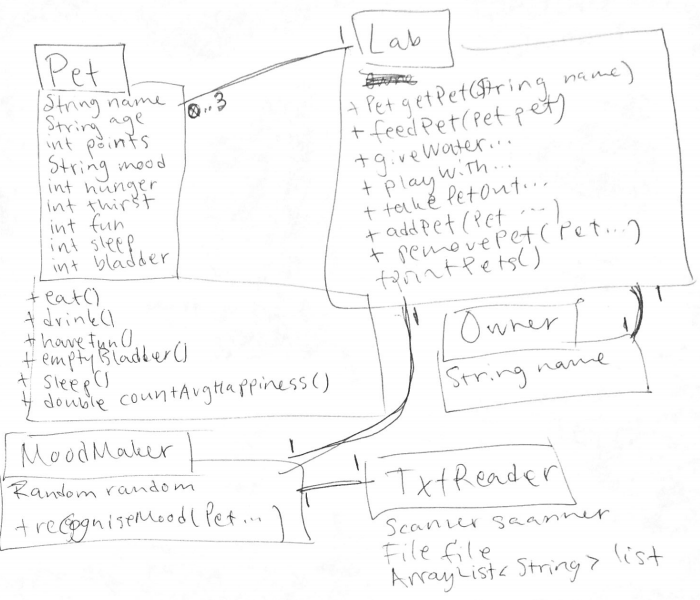 Pet
String name
String age
int points
String mood
int hunger
int thirst
int fun
int sleep
int bladder
+ eat()
+ drink()
+ havefun()
+ emptyBladder()
+ sleep()
+ double countAvgHappiness()
0..3
1
Lab
+ Pet getPet(String name)
+ feedPet(Pet pet)
+ giveWater...
+ playWith...
+ takePetOut...
+ addPet(Pet ...)
+ removePet(Pet...)
+printPets()
1
1
Owner
1
String name
MoodMaker
1
Random random
+recogniseMood(Pet...)
1
1
TxtReader
Scanner scanner
File file
ArrayList<String> list